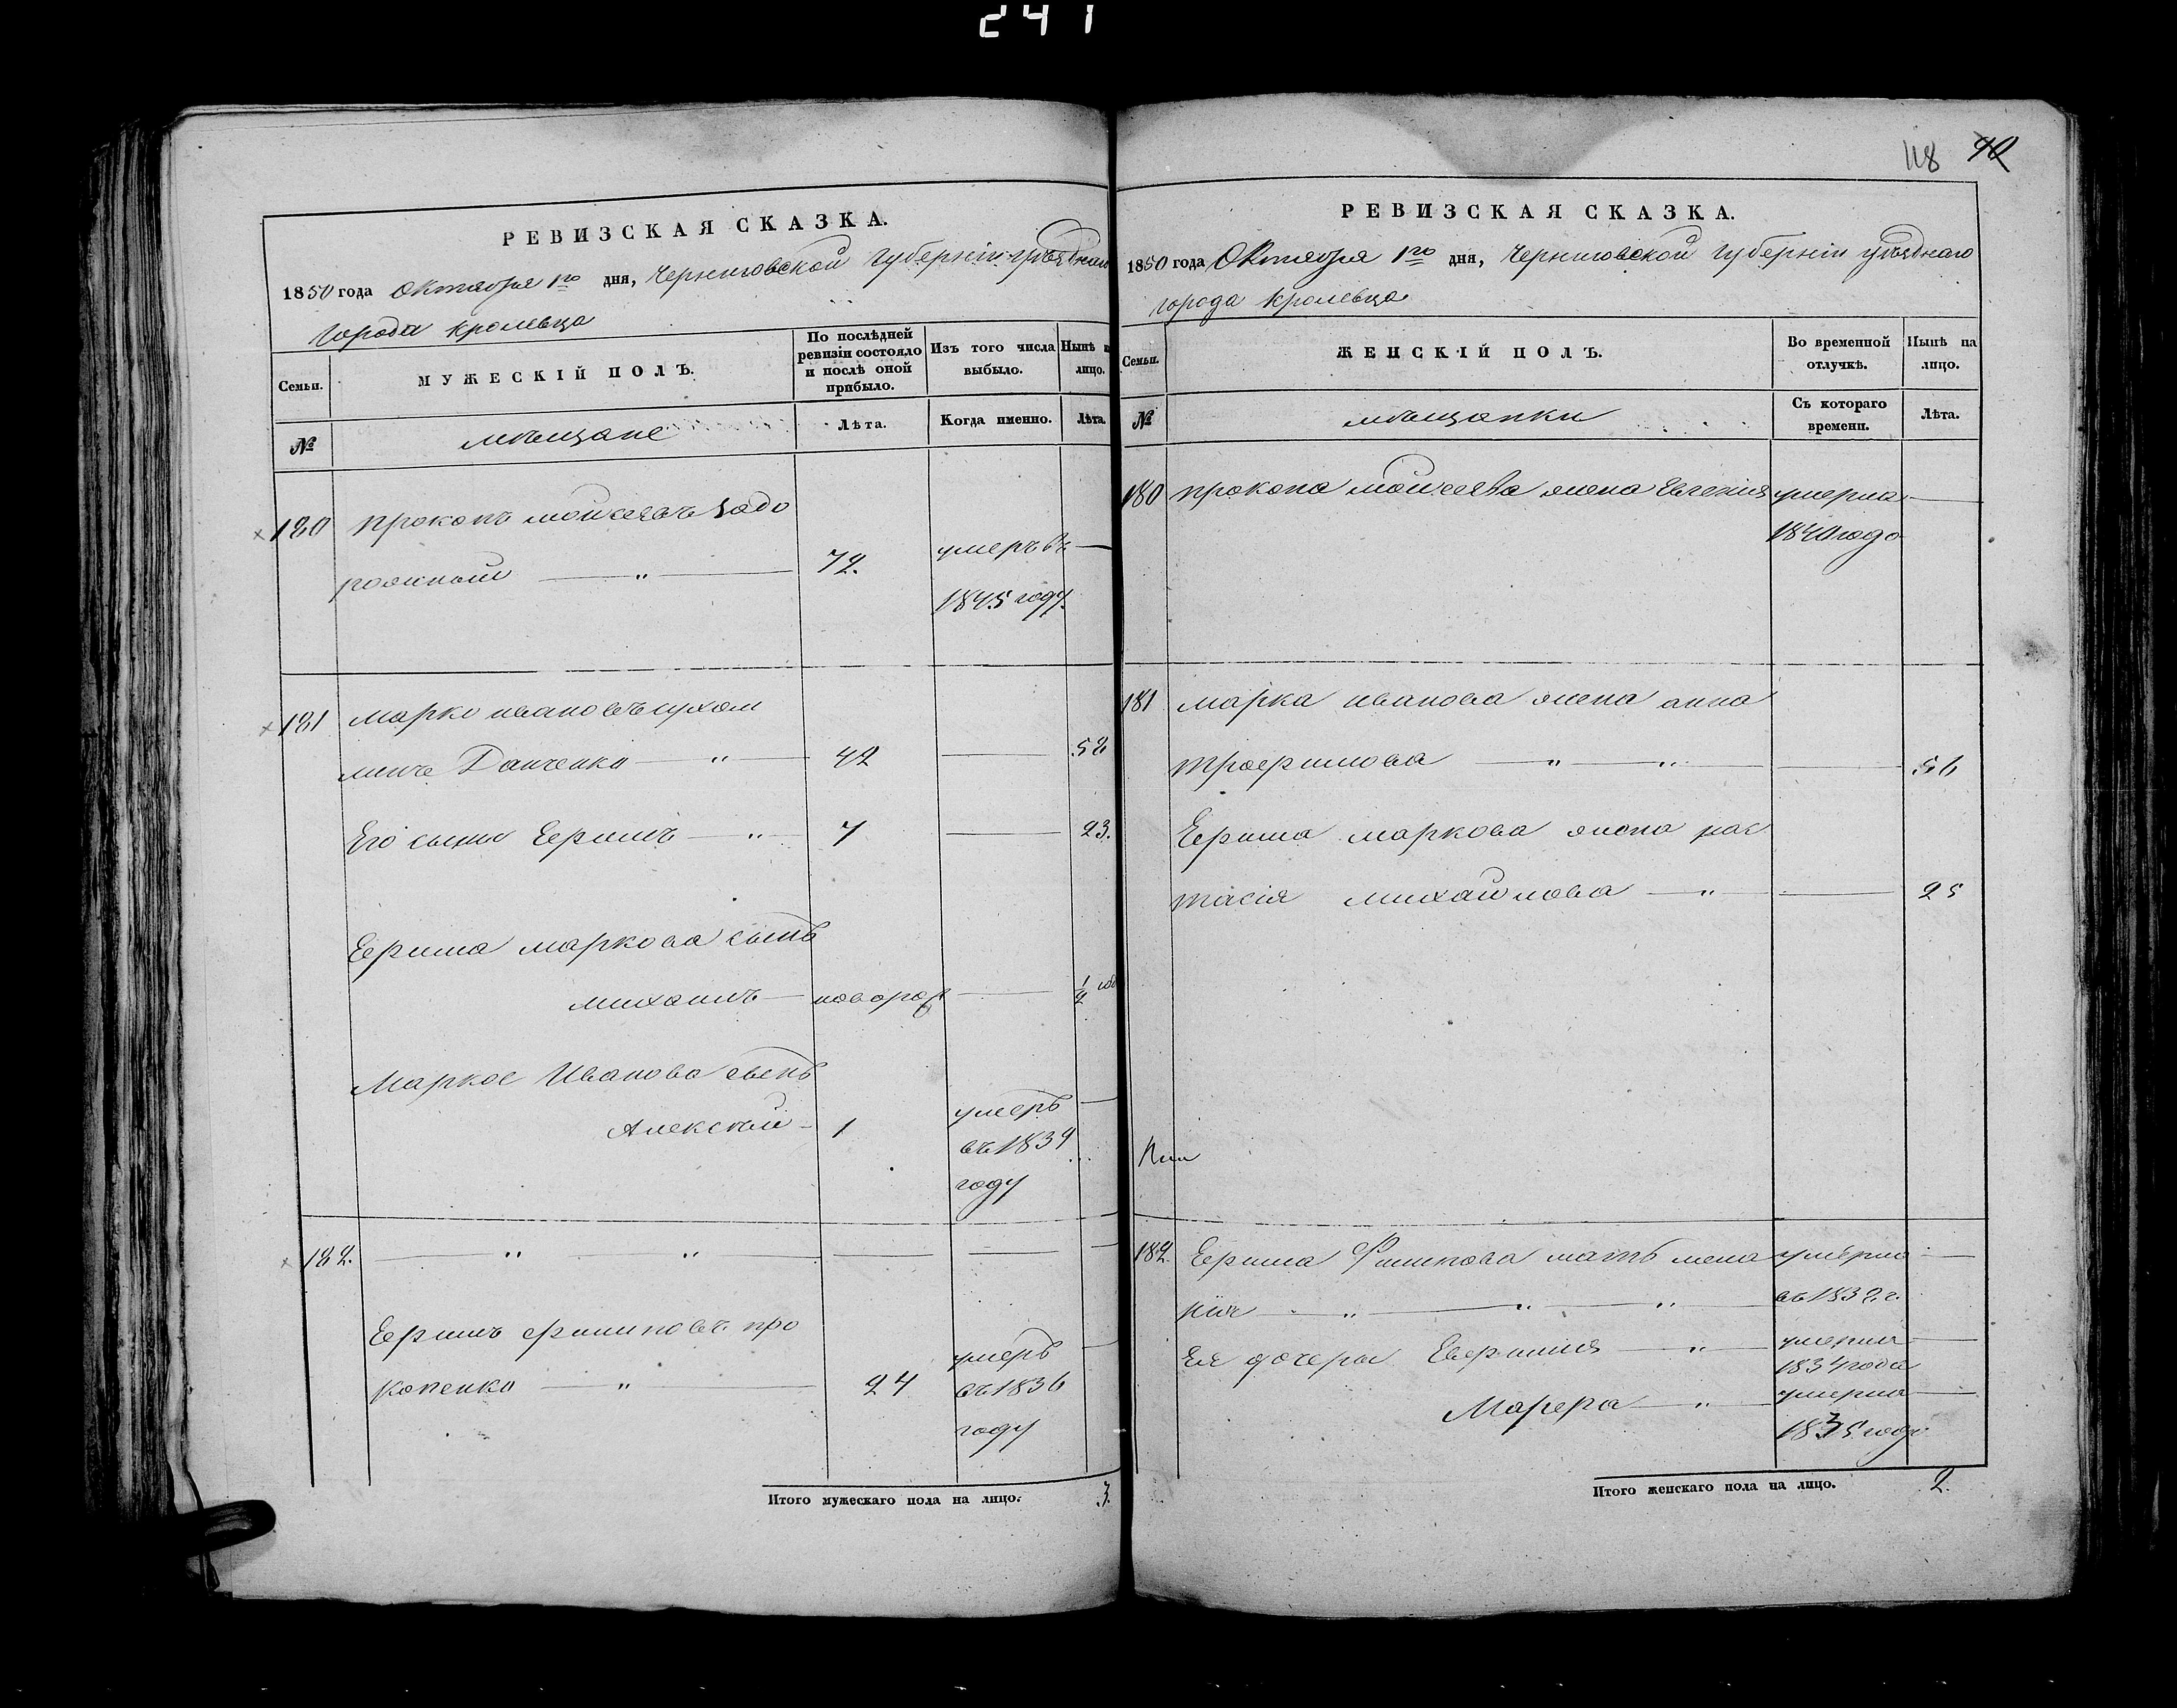 241
РЕВИЗСКАЯ СКАЗКА.
1850 года Октября 1го дня, Черниговской губерніи уѣзднаго
города Кролевца
Семьи.
МУЖЕСКІЙ ПОЛЪ.
По послѣдней
ревизіи состояло
и послѣ оной
прибыло.
Изъ того числа
выбыло.
Нынѣ
лицо.
№
мѣщане
Лѣта.
Когда именно.
Лѣта.
180 прокопъ мойсеевъ задо
рожный — " — 72. умеръ въ —
1845 году.
181 марко ивановъ
Данченко — " — 42 — 52
Его сынъ Ефимъ — " — 7 — 23.
Ефима маркова сынъ
михаилъ — новорож — 1/2 год
Марков Иванова сынъ
Алексѣй — 1 умеръ —
въ 1834
году
182. — " — " — — — —
Ефимъ филиповъ про
копенко — " — 24 умеръ —
въ 1836
году
Итого мужескаго пола на лицо. 3.
118 90
РЕВИЗСКАЯ СКАЗКА.
1850 года Октября 1го дня, Черниговской губерніи уѣзднаго
города Кролевца
Семьи.
ЖЕНСКІЙ ПОЛЪ.
Во временной
отлучкѣ.
Нынѣ на
лицо.
№
мѣщанки
Съ котораго
времени.
Лѣта.
180 прокопа мойсеева жена Евгения умерла —
1840 года
181 марка иванова жена анна
трофимова — " — " — — 56
Ефима маркова жена нас
тасія михайлова — " — — 25
182. Ефима Филипова мать мела умерла —
нія — " — " — " — въ 1832 г.
Ея дочеры Евфимия — " — умерла —
1834 года
Марфа — " — умерла —
1835 года
Итого женскаго пола на лицо. 2.